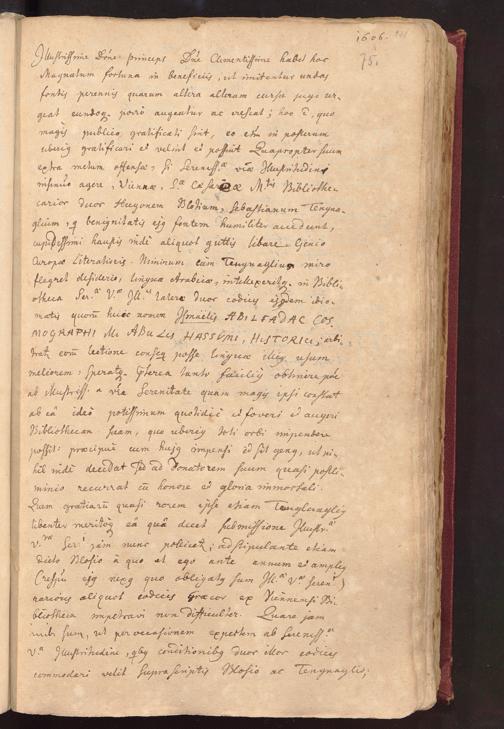 1606.
75.
Illustrissime Dne princeps Dne Clementissime habet hoc
Magnatum fortuna in beneficiis, ut imitentur undas
fontis perennis quarum altera alteram cursu jugi ur-
geat eundoq porro augeatur ac crescat; hoc e, quo
magis publico gratificati sint, eo etm in posterum
uberius gratificari et velint et possint Quapropter
extra metum offensæ, si Sereniss.ae Illustritudinis
agere, Viennæ, Sae Cæsareæ Mtis Bibliothe-
carior duor Hugonem Blotium, Sebastianum Tengna-
glium, q benignitatis ejus fontem humiliter accedunt,
haustis inde aliquot guttis libare Genio
Europæ Literariæ. Nimirum cum Tengnaglius miro
flagret desiderio, linguæ Arabicæ, in Biblio-
theca Ser.ae V.ae Ill.ae latere duor codices ejusdem idio-
matis quorum huic nomen Ismaelis ABILFADAC COS
MOGRAPHI illi ABULES HASSUMI, HISTORICI; arbi-
trat eorum lectione conseq posse linguæ illius usum
meliorem; tanto facilius obtinere posse
ab Illustriss.a Serenitate quam magis ipsi constat
ab ea ideo potissimum quotidie et foveri et augeri
Bibliothecam suam, quo uberius toti orbi impendere
possit: præcipue cum hujus impensi ea sit genus, ut ni-
hil inde decedat sed ad Donatorem suum quasi postli-
minio recurrat cum honore et gloria immortali.
Quam gratiarum quasi rorem ipse etiam Tengnaglius
libenter ea qua decet submissione Illustr.ae
V.rae Ser.ti jam nunc pollicet; adstipulante etiam
dicto Blotio a quo et ego ante annum et amplius
quo obligatus sum Ill.ae V.ae
rariores aliquot codices Græcor ex Viennensi Bi-
bliotheca impetravi non difficulter. Quare jam
sum, ut per occasionem expertem ab Sereniss.a
V.a Illustritudine, qbus conditionibus duor illor codices
commodari velit suprascriptis Blotio ac Tengnaglio;